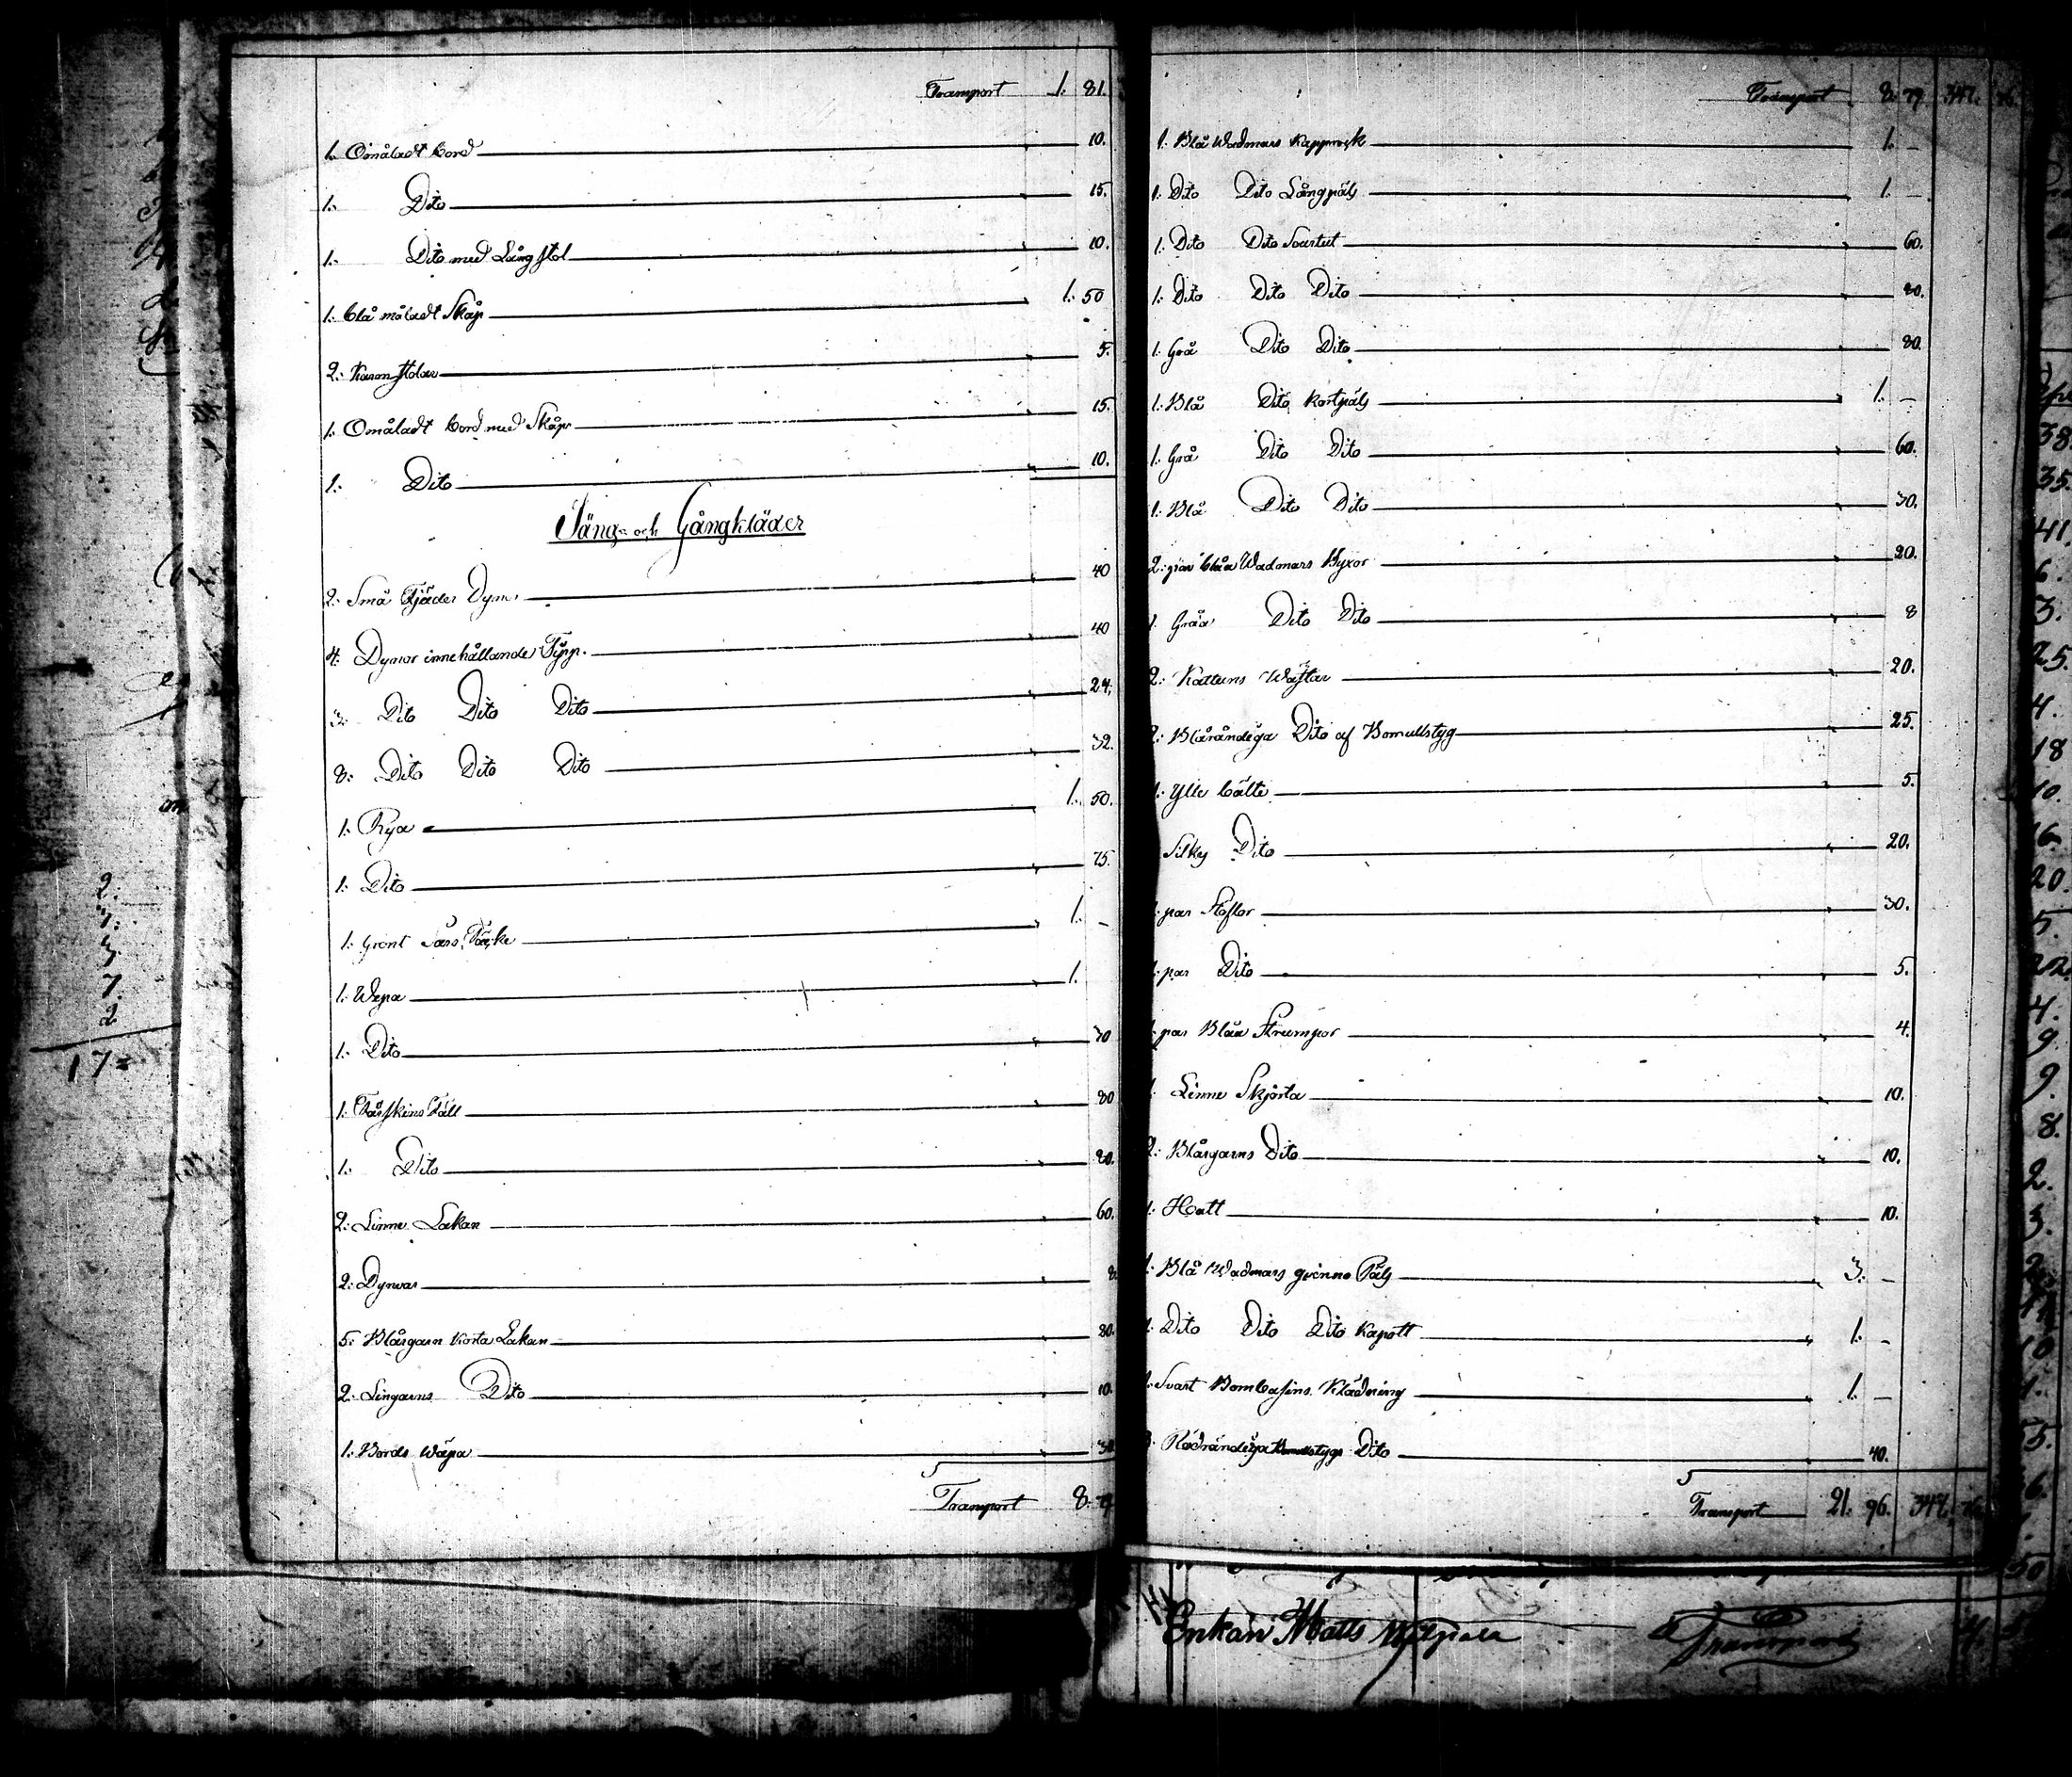 Transport 1. 81.
1. Omåladt bord 10.
1. Dito 15.
1. Dito med Långstol 10.
1. blå måladt Skåp 1. 50
2. Karmstolar 5.
1. Omåladt bord med Skåp 15.
1. Dito 10.
Säng- och Gångkläder
2. Små Fjäder Dynor 40
4. Dynor innehållande 40
3. Dito Dito Dito 24.
8. Dito Dito Dito 32.
1. Rya 1. 50.
1. Dito 75.
1. Grönt Täcke 1. -
1. Wepa 1.
1. Dito 30
1. Fårskins Fäll 80
1. Dito 20.
2. Linne Lakan 60.
2. Dynvar 8
5. Blårgarn korta Lakan 80.
2. Lingarns Dito 10.
1. Bords Wäpa 30
Transport 8. 79
Transport 8. 79 347. 76.
1. Blå Wadmars Kapprock 1. -
1. Dito Dito Långpäls 1. -
1. Dito Dito Surtut 60.
1. Dito Dito Dito
1. Grå Dito Dito 80.
1. Blå Dito kortpäls 1. -
1. Grå Dito Dito 60.
1. Blå Dito Dito 30.
2. par blåa Wadmars Byxor 20.
1. Gråa Dito Dito 8
2. Kattuns Wästar 20.
2. Blårandiga Dito af Bomullstyg 25.
1. Ylle bälte 5.
Silkes Dito 20.
1. par Stöflor 30.
1. par Dito 5.
1. par Blåa Strumpor 4.
1. Linne Skjorta 10.
2. Blårgarns Dito 10.
1. Hatt 10.
1. Blå Wadmars qvinno Päls 3. -
1. Dito Dito Dito Kapott 1. -
1. Svart Bombasins Klädning 1. -
3. Rödrandiga Bomullstygs Dito 40.
Transport 21. 96. 347. 76.
Enkan Matts
Transport
2.
7.
3
7
2
17=